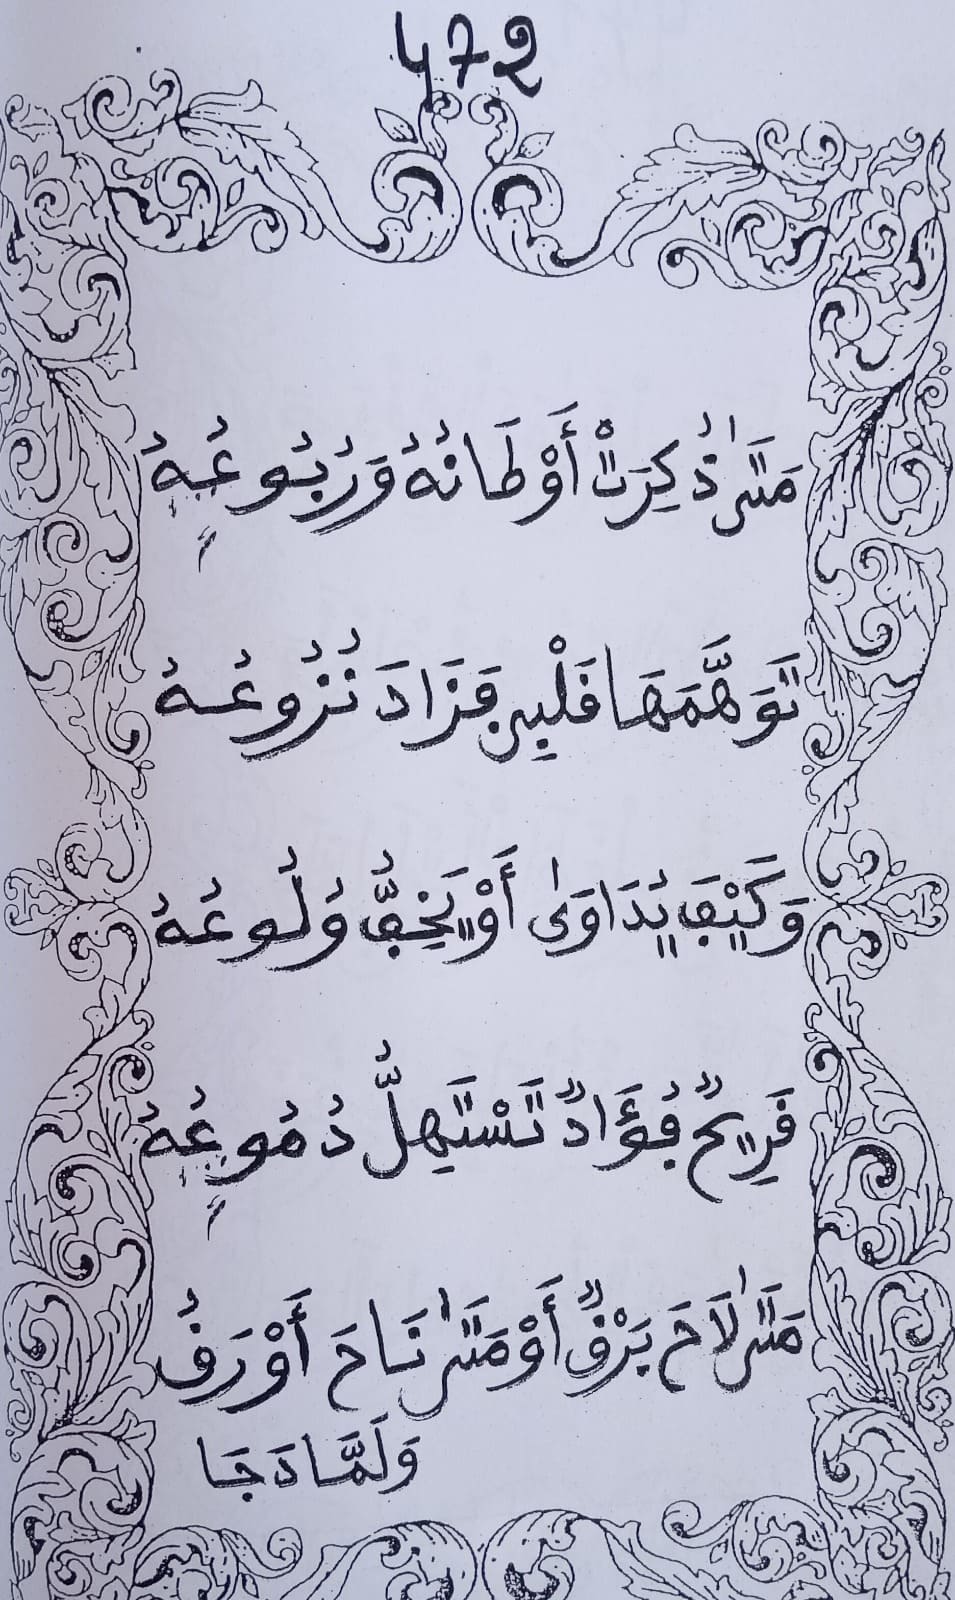 472
مَتَىٰ ذُكِرَتْ أَوْطَانُهُ وَرُبُوعُهُ
تَوَهَّمَهَا قَلْبِي فَزَادَ نُزُوعُهُ
وَكَيْفَ يُدَاوَىٰ أَوْ يَخِفُّ وُلُوعُهُ
قَرِيحٌ فُؤَادٌ تَسْتَهِلُّ دُمُوعُهُ
مَتَىٰ لَاحَ بَرْقٌ أَوْ مَتَىٰ نَاحَ أَوْرَقُ
وَلَمَّا دَجَا